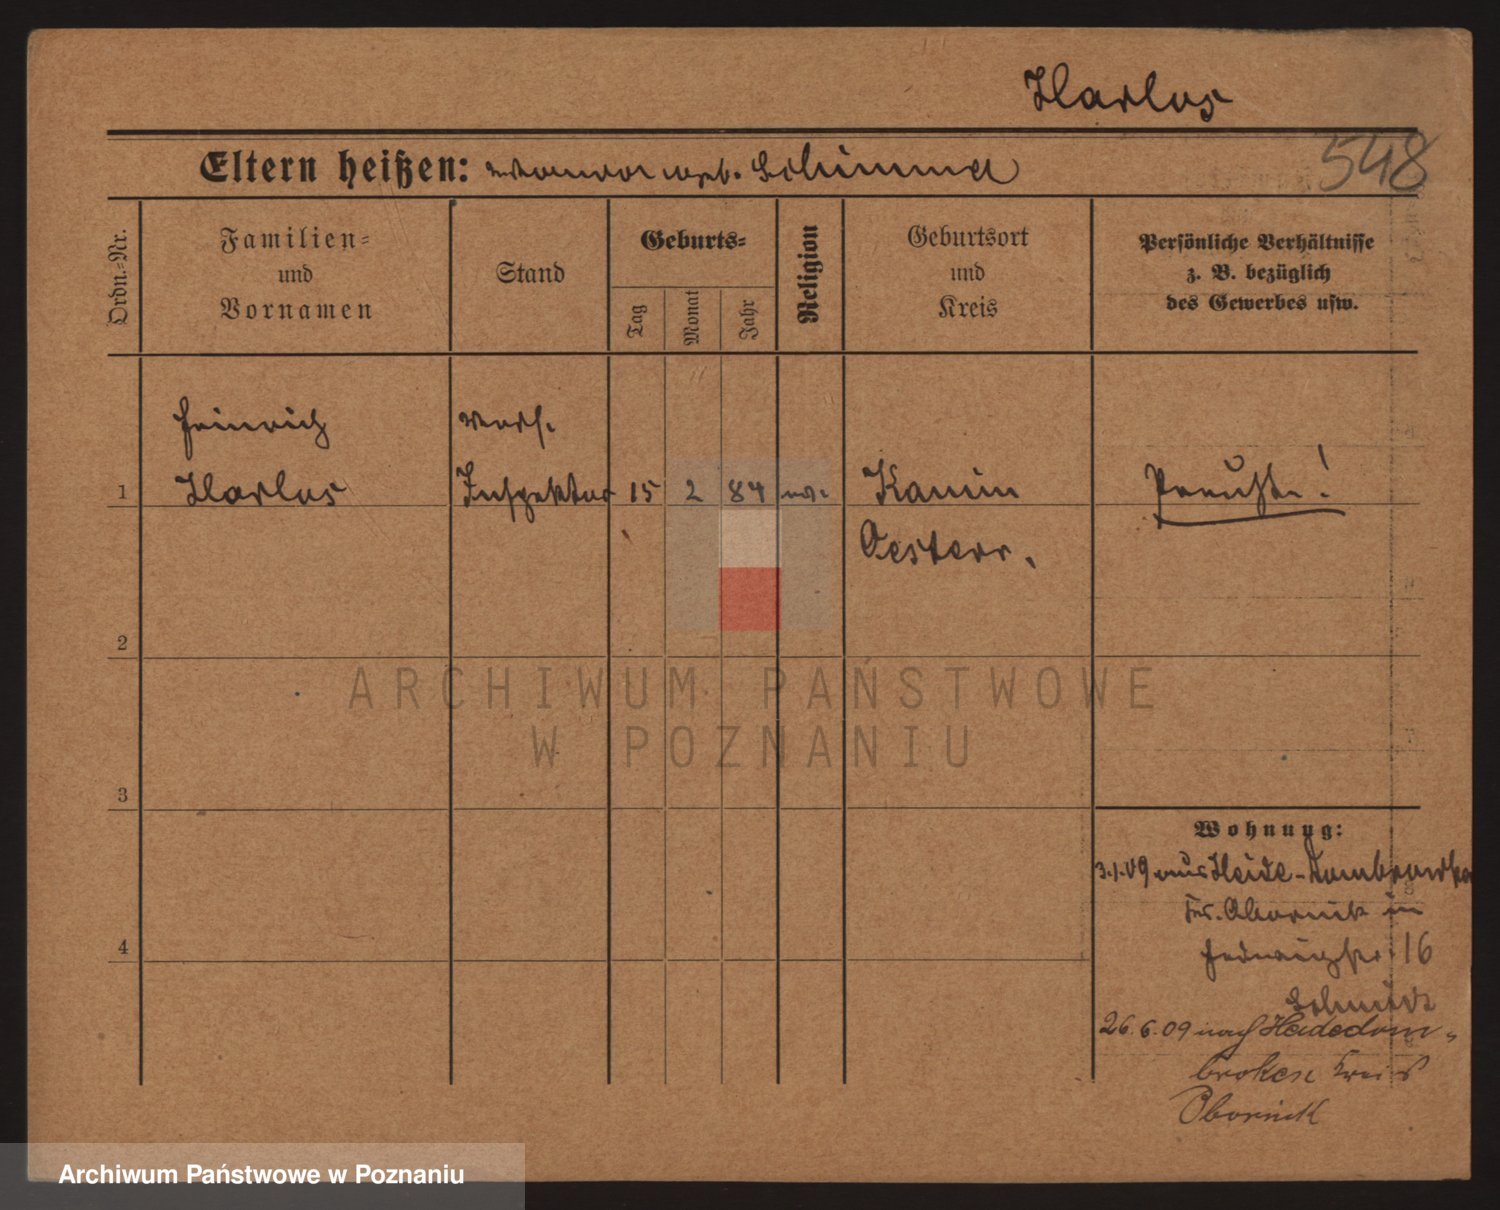 Harlos
548
Eltern heißen: geb. Schimmel
Ordn.-Nr.
Familien-
und
Vornamen
Stand
Geburts-
Tag
Monat
Jahr
Religion
Geburtsort
und
Kreis
Persönliche Verhältnisse
z. B. bezüglich
des Gewerbes usw.
Heinrich
Harlos
Inspektor
1
15
2
84
ev.
Kamin
Oesterr.
Preuße!
2
3
4
ARCHIWUM PAŃSTWOWE
W POZNANIU
Wohnung:
3.1.09 aus Heide-Dombrowka
Kr. Obornik in
Hedwigstr. 16
Schmidt
26.6.09 nach Heidedom-
broken Kreis
Obornick
Archiwum Państwowe w Poznaniu